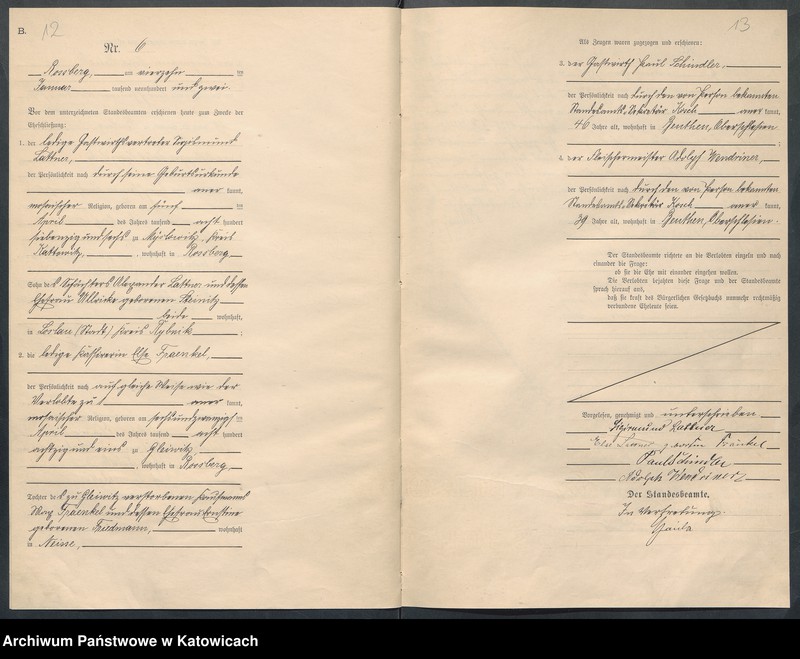 B.
12
Nr. 6
Rossberg, am vierzehn ten
Januar tausend neunhundert und zwei
Vor dem unterzeichneten Standesbeamten erschienen heute zum Zwecke der
Eheschließung:
1. der ledige Gastwirthsvertreter Sigismund
Lattner,
der Persönlichkeit nach durch seine Geburtsurkunde
aner kannt,
mosaischer Religion, geboren am fünf ten
April des Jahres tausend acht hundert
siebenzig und sechs zu Myslowitz, Kreis
Kattowitz, , wohnhaft in Rossberg
Sohn des Schächters Alexander Lattner und dessen
Ehefrau Ulricke geborenen Steinitz
beide wohnhaft,
in Loslau (Stadt) Kreis Rybnik ;
2. die ledige Kassirerin Else Fraenkel,
der Persönlichkeit nach auf gleiche Weise wie der
Verlobte zu 1 aner kannt,
mosaischer Religion, geboren am sechsundzwanzigs ten
April des Jahres tausend acht hundert
achtzig und eins zu Gleiwitz,
, wohnhaft in Rossberg,
Tochter des zu Gleiwitz verstorbenen Kaufmanns
Max Fraenkel und dessen Ehefrau Ernstine
geborenen Friedmann, wohnhaft
in Neisse,
13
Als Zeugen waren zugezogen und erschienen:
3. der Gastwirth Paul Schindler,
der Persönlichkeit nach durch den von Person bekannten
Standesamts-Sekretär Koch aner kannt,
40 Jahre alt, wohnhaft in Beuthen, Oberschlesien
;
4. der Fleischermeister Adolph Wendriner,
der Persönlichkeit nach durch den von Person bekannten
Standesamts-Sekretär Koch aner kannt,
39 Jahre alt, wohnhaft in Beuthen, Oberschlesien.
Der Standesbeamte richtete an die Verlobten einzeln und nach
einander die Frage:
ob sie die Ehe mit einander eingehen wollen.
Die Verlobten bejahten diese Frage und der Standesbeamte
sprach hierauf aus,
daß sie kraft des Bürgerlichen Gesetzbuchs nunmehr rechtmäßig
verbundene Eheleute seien.
Vorgelesen, genehmigt und unterschrieben
Sigismund Lattner
Else Lattner geborene Fränkel
Paul Schindler
Adolph Wendriner
Der Standesbeamte.
In Vertretung.
Archiwum Państwowe w Katowicach